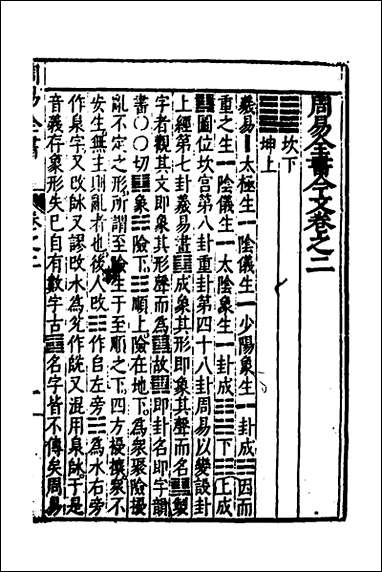 周易全書今文卷之二
䷆坎下
坤上
羲易丨太極生一陰儀生一少陽象生一卦成☵因而
重之生一陰儀生一太陰象生一卦成☷☵下☷上成
䷆圖位坎宮第八卦重卦第四十八卦周易以變設卦
上經第七卦羲易畫䷆成象其形即象其聲而名䷆製
字者觀其文即象其形聲而為䷆故䷆即卦名即字韻
書〇〇切䷆象☵險下☷順上險在地下為衆聚險擾
亂不定之形所謂至險生于至順之下四方擾攘衆不
安生無主則亂者也後人改☷作自左旁☵為水右旁
作泉字又改師又謬改水為作旣又混用泉師于是
音義存象形失已自有數字古䷆名字皆不傳矣周易
周易全書 卷之二